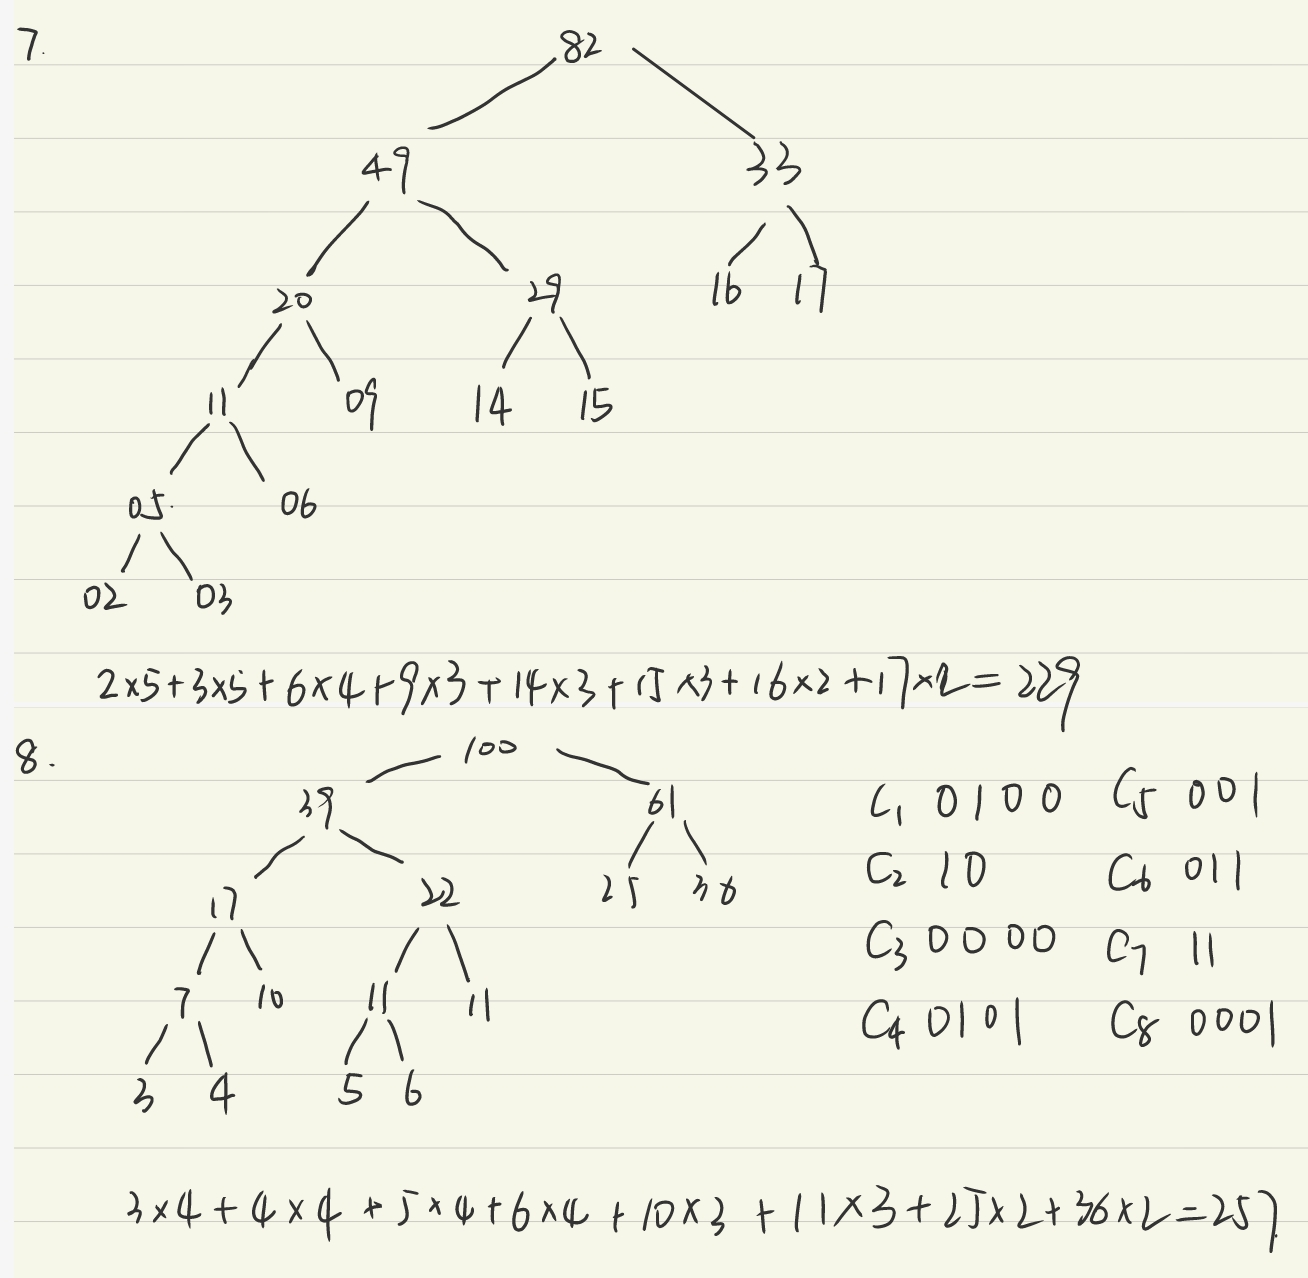 7.
82
49 33
20 29 16 17
11 09 14 15
05 06
02 03
2×5+3×5+6×4+9×3+14×3+15×3+16×2+17×2=229
8.
100
39 61
17 22 25 36
7 10 11 11
3 4 5 6
C1 0100 C5 001
C2 10 C6 011
C3 0000 C7 11
C4 0101 C8 0001
3×4+4×4+5×4+6×4+10×3+11×3+25×2+36×2=257